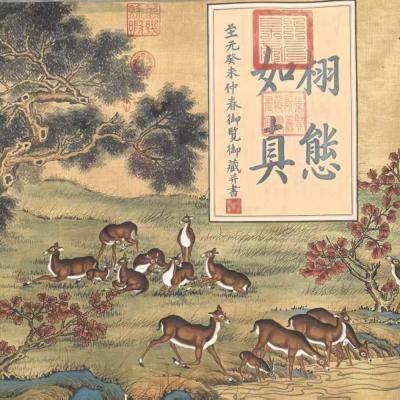 栩態
如真
至元癸未仲春御覽御藏并書